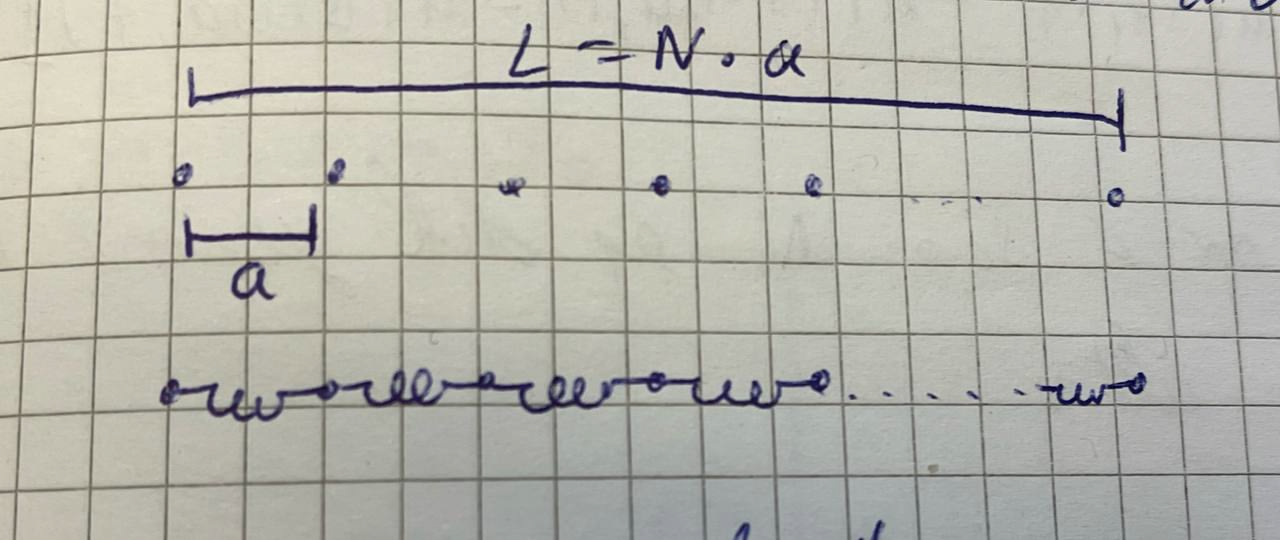 L = N · a
a